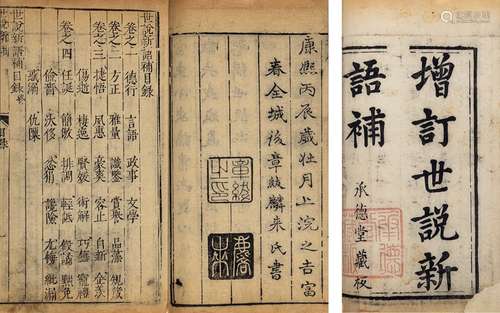 增訂世說新
語補
承德堂藏板
康熙丙辰歲壯月上浣之吉富
春金城後章紱麟來氏書
世說新語補目錄
卷之一 德行 言語 政事 文學
卷之二 方正 雅量 識鑒 賞譽 品藻 規箴
卷之三 捷悟 夙惠 豪爽 容止 自新 企羨
傷逝 棲逸 賢媛 術解 巧藝 寵禮
卷之四 任誕 簡傲 排調 輕詆 假譎 黜免
儉嗇 汰侈 忿狷 讒險 尤悔 紕漏
惑溺 仇隟
世說新語補目錄終